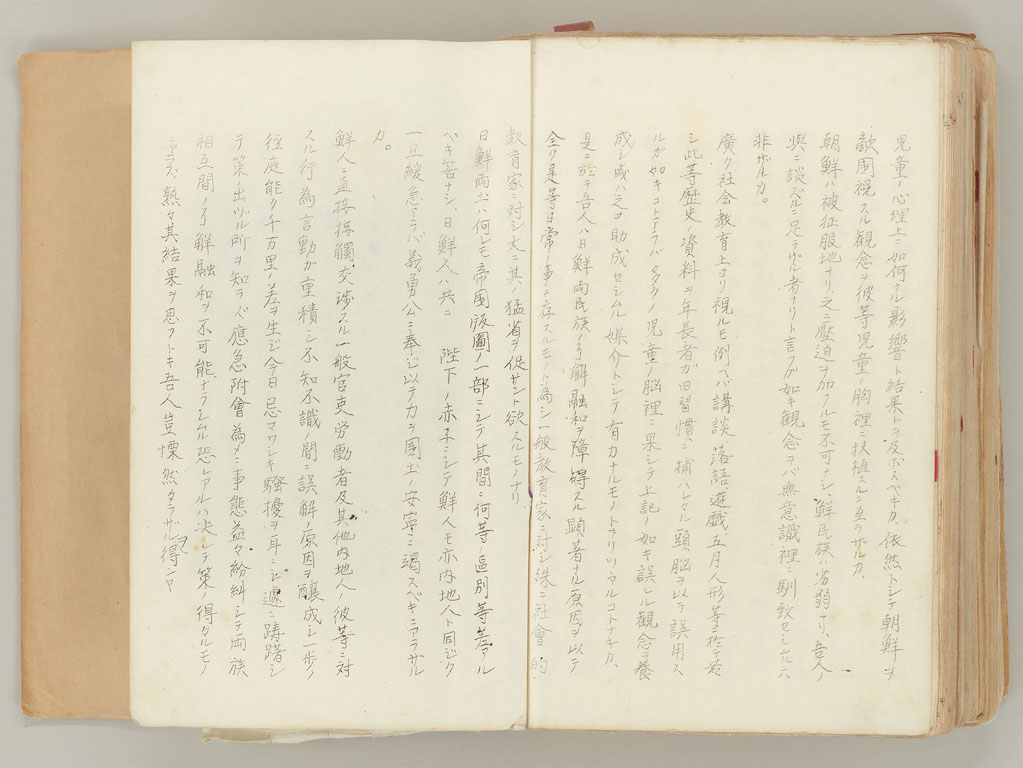 児童ノ心理上ニ如何ナル影響ト結果トヲ及ボスベキカ、依然トシテ朝鮮ヲ
敵國視スル観念ヲ彼等児童ノ胸裡ニ扶植スルニ至ラザルカ、
朝鮮ハ被征服地ナリ之ニ壓迫ヲ加フルモ不可ナシ、鮮民族ハ劣弱ナリ、吾人ノ
與ニ談ズルニ足ラザル者ナリト言フガ如キ観念ヲバ無意識裡ニ馴致セシムルニ
非ザルカ。
廣ク社会教育上ヨリ視ルモ例ヘバ講談、落語、遊戯、五月人形等ニ於テ若
シ此等歴史ノ資料ヲ年長者ガ旧習慣ニ捕ハレタル頭脳ヲ以テ誤用ス
ルガ如キコトアラバ多クノ児童ノ脳裡ニ果シテ上記ノ如キ誤レル観念ヲ養
成シ或ハ之ヲ助成セシムル媒介トシテ有力ナルモノトナリツヽアルコトナキカ、
是ニ於テ吾人ハ日鮮両民族ノ了解融和ヲ障碍スル顕著ナル原因ヲ以テ
全ク是等日常ノ事ニ存スルモノト為シ一般教育家ニ対シ殊ニ社會的
教育家ニ対シ大ニ其ノ猛省ヲ促サント欲スルモノナリ
日鮮両土ハ何レモ帝国版圖ノ一部ニシテ其間ニ何等ノ區別等差アル
ベキ筈ナシ、日鮮人ハ共ニ 陛下ノ赤子ニシテ鮮人モ亦内地人ト同ジク
一旦緩急アラバ義勇公ニ奉ジ以テ力ヲ國土ノ安寧ニ竭スベキニアラザル
カ。
鮮人ニ直接接觸交渉スル一般官吏労働者及其他内地人ノ彼等ニ対
スル行為言動ガ重積シ不知不識ノ間ニ誤解ノ原因ヲ釀成シ一歩ノ
径庭能ク千万里ノ差ヲ生ジ今日忌マワシキ騒擾ヲ耳ニシ遽ニ躊躇シ
テ策ノ出ヅル所ヲ知ラズ應急附會為メニ事態益々紛糾シテ両族
相互間ノ了解融和ヲ不可能ナラシムル恐レアルハ決シテ策ノ得タルモノ
ニアラズ、熟々其結果ヲ思フトキ吾人豈慄然タラザルヲ得ンヤ